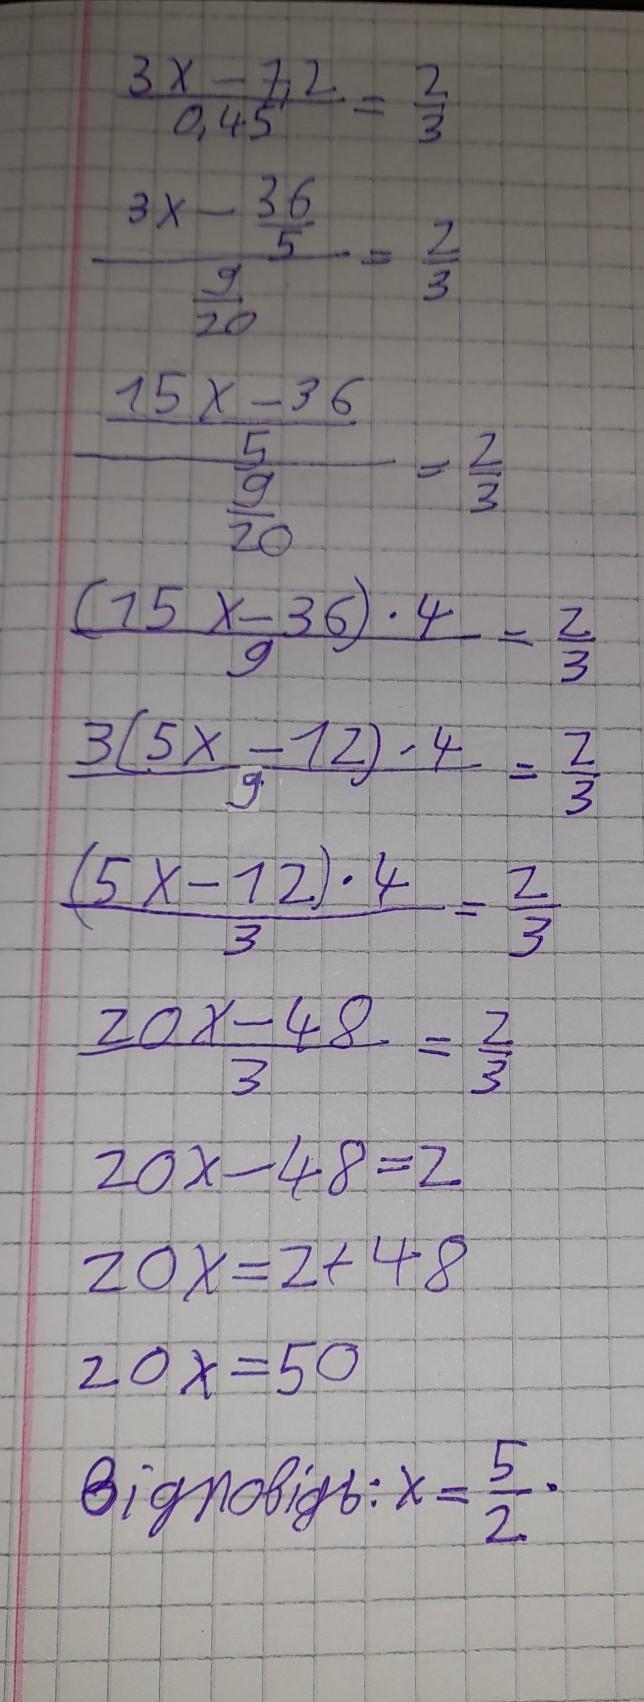 (3x - 7,2)/0,45 = 2/3
(3x - 36/5)/(9/20) = 2/3
((15x - 36)/5)/(9/20) = 2/3
((15x - 36) · 4)/9 = 2/3
(3(5x - 12) · 4)/9 = 2/3
((5x - 12) · 4)/3 = 2/3
(20x - 48)/3 = 2/3
20x - 48 = 2
20x = 2 + 48
20x = 50
Відповідь: x = 5/2.